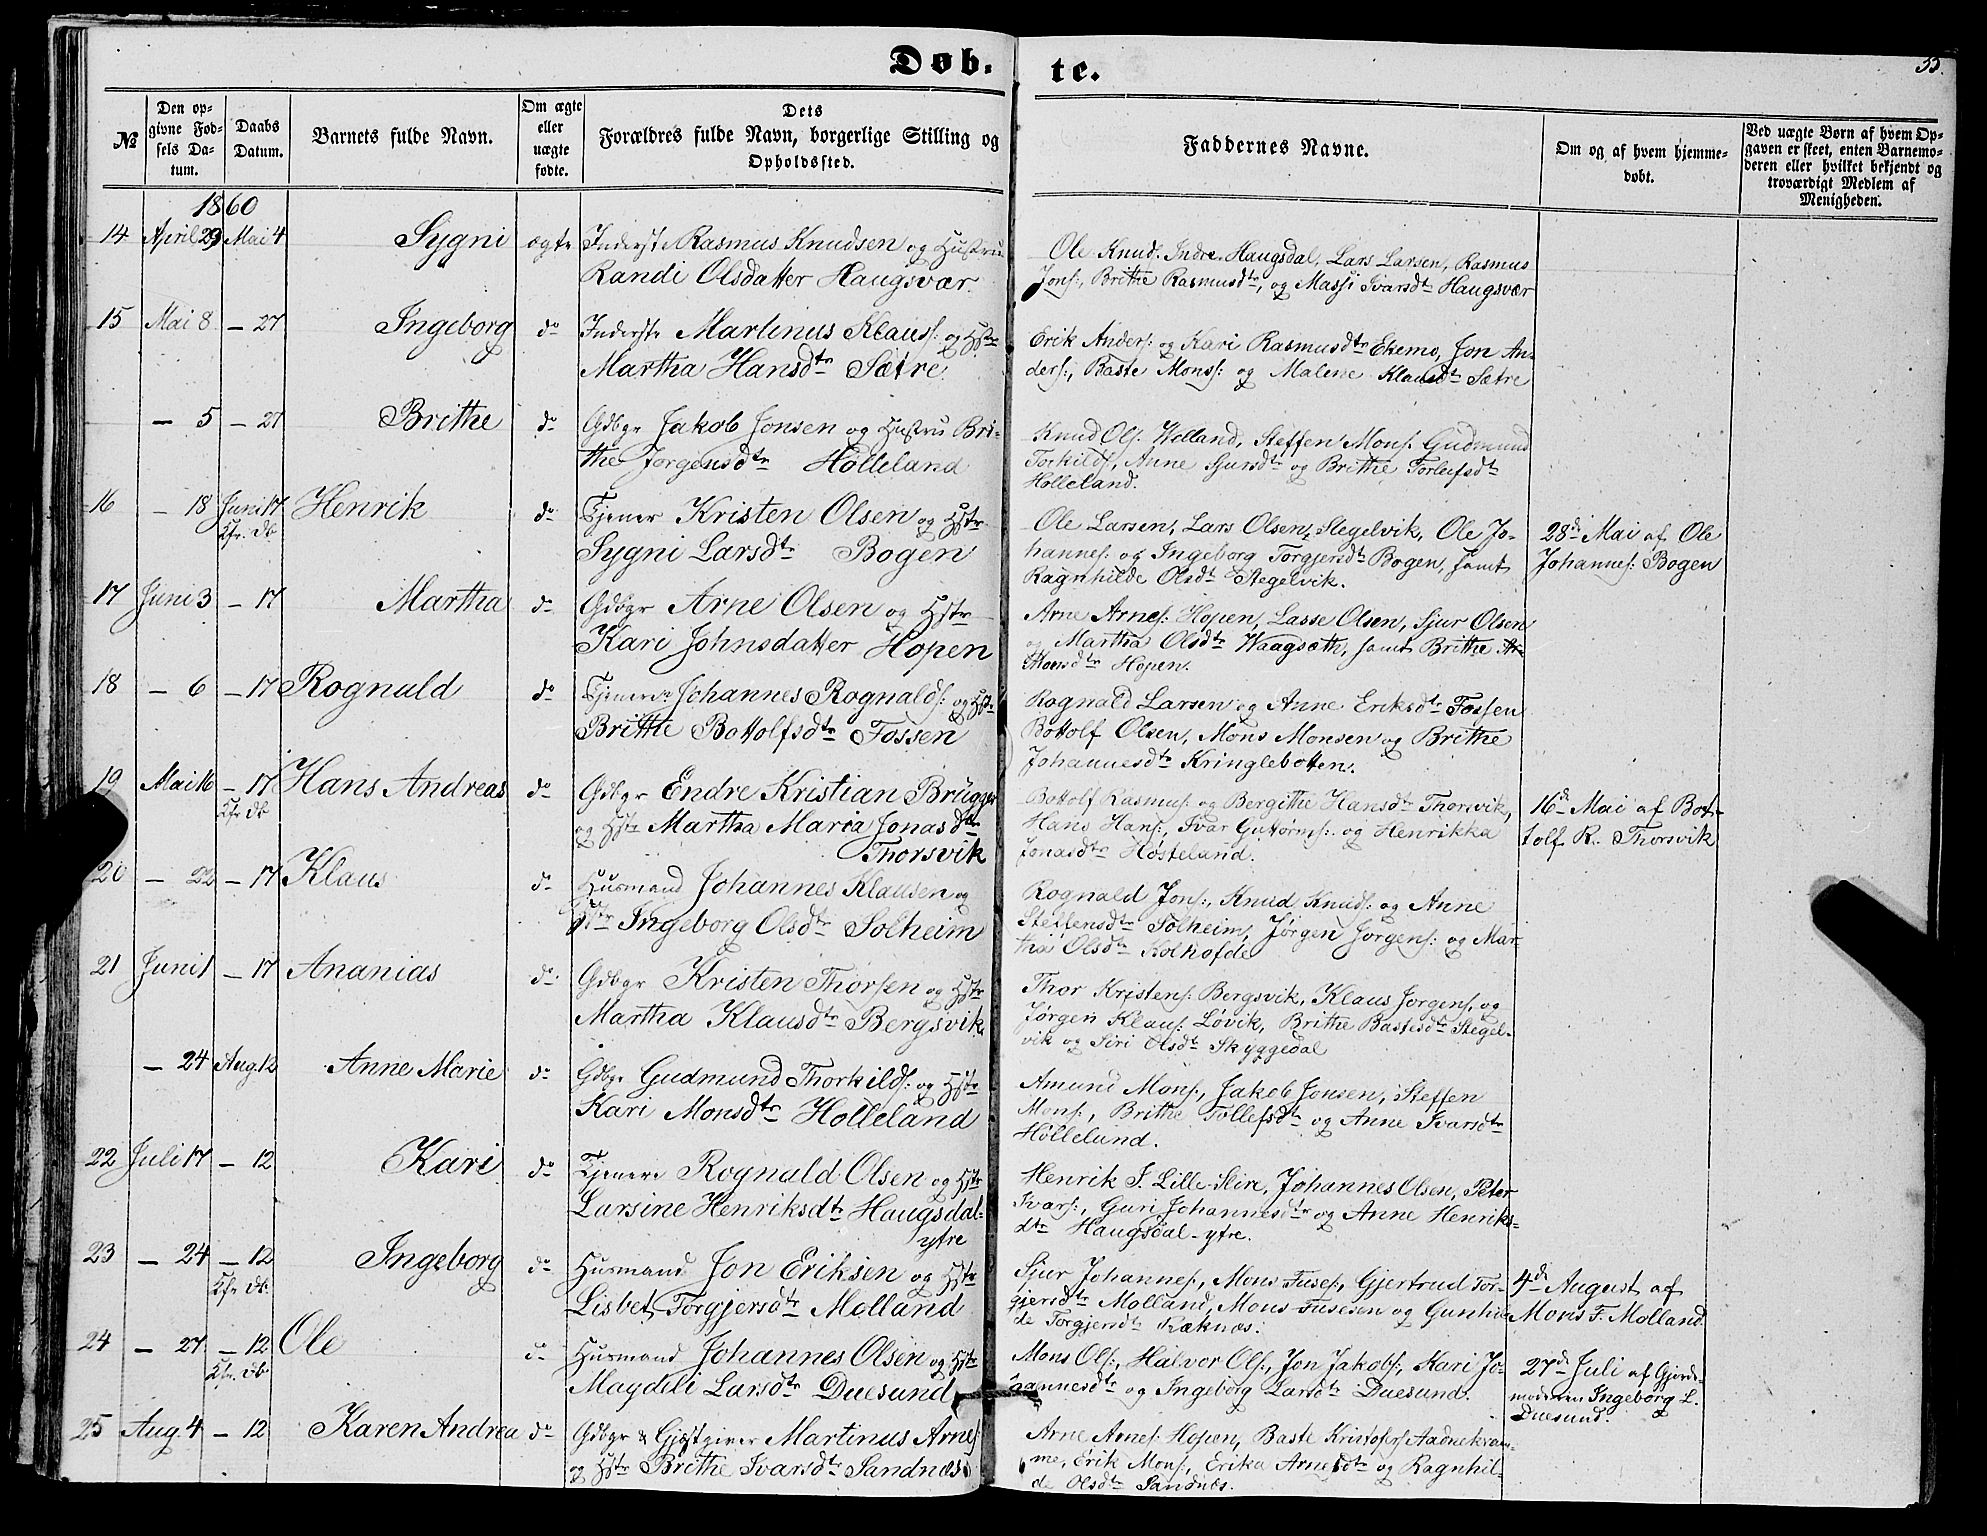 Døb-te.
55.
№
Den opgivne Fødsels Datum.
Daabs Datum.
Barnets fulde Navn.
Om ægte eller uægte fødte.
Dets Forældres fulde Navn, borgerlige Stilling og Opholdssted.
Faddernes Navne.
Om og af hvem hjemmedøbt.
Ved uægte Børn af hvem Opgaven er skeet, enten Barnemoderen eller hvilket bekjendt og troværdigt Medlem af Menigheden.
1860
14 April 29 Mai 4 Sygni ægte Inderste Rasmus Knudsen og Hustru
Randi Olsdatter Haugsvær
Ole Knuds. Indre Haugsdal, Lars Larsen, Rasmus
Jons:, Brithe Rasmusdtr, og Massi Ivarsdtr Haugsvær
15 Mai 8 – 27 Ingeborg do Inderste Martinus Klaus: og Hstr
Martha Hansdtr Sætre
Erik Anders: og Kari Rasmusdtr Ekemo, Jon An-
ders:, Baste Mons: og Malene Klausdtr Sætre
– 5 – 27 Brithe do Gdbgr Jakob Jonsen og Hustru Bri-
the Jørgensdtr Hølleland
Knud Ols: Helland, Steffen Mons: Gudmund
Torkilds, Anne Sjursdtr og Brithe Torleifsdtr
Hølleland.
16 – 18 Juni 17 Henrik do Tjener Kristen Olsen og Hstr
Kfr. db
Sygni Larsdtr Bogen
Ole Larsen, Lars Olsen, Stegelvik, Ole Jo-
hannes: og Ingeborg Torgjersdtr Bogen, samt
Ragnhilde Olsdtr Stegelvik.
28de Mai af Ole
Johannes: Bogen
17 Juni 3 – 17 Martha do Gdbgr Arne Olsen og Hstr
Kari Johnsdatter Hopen
Arne Arnes: Hopen, Lasse Olsen, Sjur Olsen
og Martha Olsdtr Waagsæth, samt Brithe
Hopen.
18 – 6 – 17 Rognald do Tjenere Johannes Rognalds: og Hstr
Brithe Bottolfsdtr Fossen
Rognald Larsen og Anne Eriksdtr Fossen
Bottolf Olsen, Mons Monsen og Brithe
Johannesdtr Kringlebotten.
19 Mai 16 – 17 Hans Andreas do Gdbgr Endre Kristian Brügger
Kfr db
og Hstr Martha Maria Jonasdtr
Thorsvik
Bottolf Rasmus: og Bergithe Hansdtr Thorsvik,
Hans Hans:, Ivar Gutorms: og Henrikka
Jonasdtr Høsteland.
16de Mai af Bot-
tolf R. Thorsvik
20 – 22 – 17 Klaus do Husmand Johannes Klausen og
Hstr Ingeborg Olsdtr Solheim
Rognald Jons:, Knud Knuds: og Anne
Steffensdtr Solheim, Jørgen Jørgens: og Mar-
tha Olsdtr Kolhofde
21 Juni 1 – 17 Ananias do Gdbgr Kristen Thorsen og Hstr
Martha Klausdtr Bergsvik
Thor Kristens: Bergsvik, Klaus Jørgens, og
Jørgen Klaus: Løvik, Brithe Bastesdtr Stegel-
vik og Siri Olsdtr Skyggedal
– 24 Aug. 12 Anne Marie do Gdbgr Gudmund Thorkilds: og Hstr
Kari Monsdtr Hølleland
Amund Mons:, Jakob Jonsen, Steffen
Mons:, Brithe Tollefsdtr og Anne Ivarsdtr
Høllelund.
22 Juli 17 – 12 Kari do Tjenere Rognald Olsen og Hstr
Larsine Henriksdtr Haugsdal-
ytre
Henrik I. Lille-Hire, Johannes Olsen, Peter
Ivars:, Guri Johannesdtr og Anne Henriks-
dtr Haugsdal-ytre.
23 – 24 – 12 Ingeborg do Husmand Jon Eriksen og Hstr
Kfr db.
Lisbet Torgjersdtr Molland
Sjur Johannes:, Mons Fuses:, Gjertrud Tor-
gjersdtr Molland, Mons Fusesen og Gunhil-
de Torgjersdtr Ræknæs.
4de August af
Mons F. Molland
24 – 27 – 12 Ole do Husmand Johannes Olsen og Hstr
Kfr. db
Magdeli Larsdtr Duesund
Mons Ols:, Halvor Ols:, Jon Jakobs:, Kari Jo-
hannesdtr og Ingeborg Larsdtr Duesund.
27de Juli af Gjorde-
moderen Ingeborg L.
Duesund.
25 Aug. 4 – 12 Karen Andrea do Gdbgr & Gjæstgiver Martinus Arnes:
og Hstr Brithe Ivarsdtr Sandnæs
Arne Arnes: Hopen, Baste Kristofers Aadnekvam-
me, Erik Mons:, Erika Arnesdtr og Ragnhil-
de Olsdtr Sandnes.